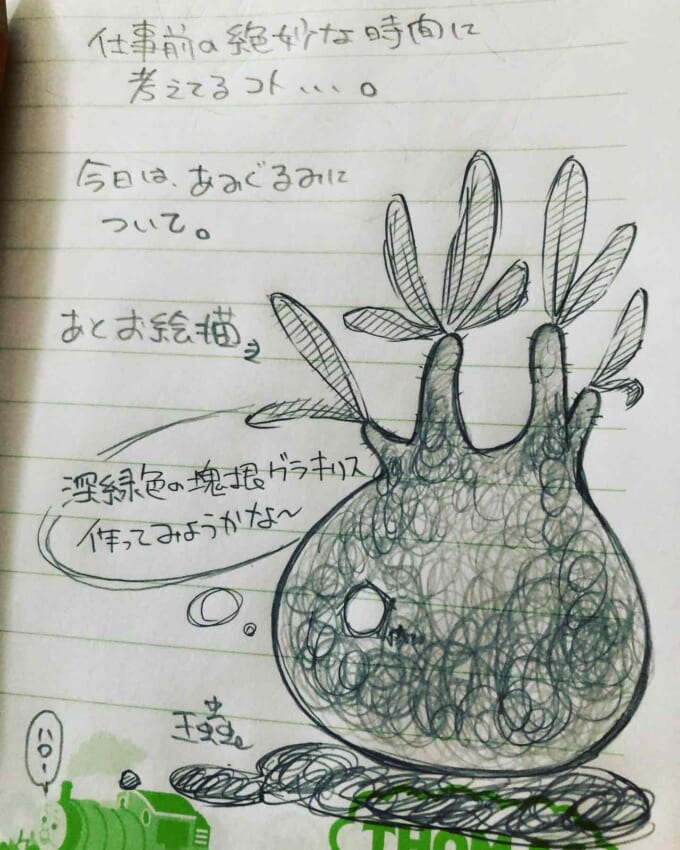 仕事前の絶妙な時間に
考えてるコト...。
今日は、あみぐるみに
ついて。
あとお絵描き
深緑色の塊根グラキリス
作ってみようかな〜
王蟲。
ハロー
THOM